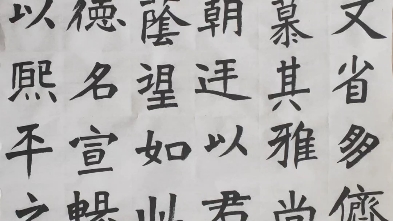 文省多儕
慕其雅尚
朝廷以君
蔭望如此
德名宣暢
以熙平之